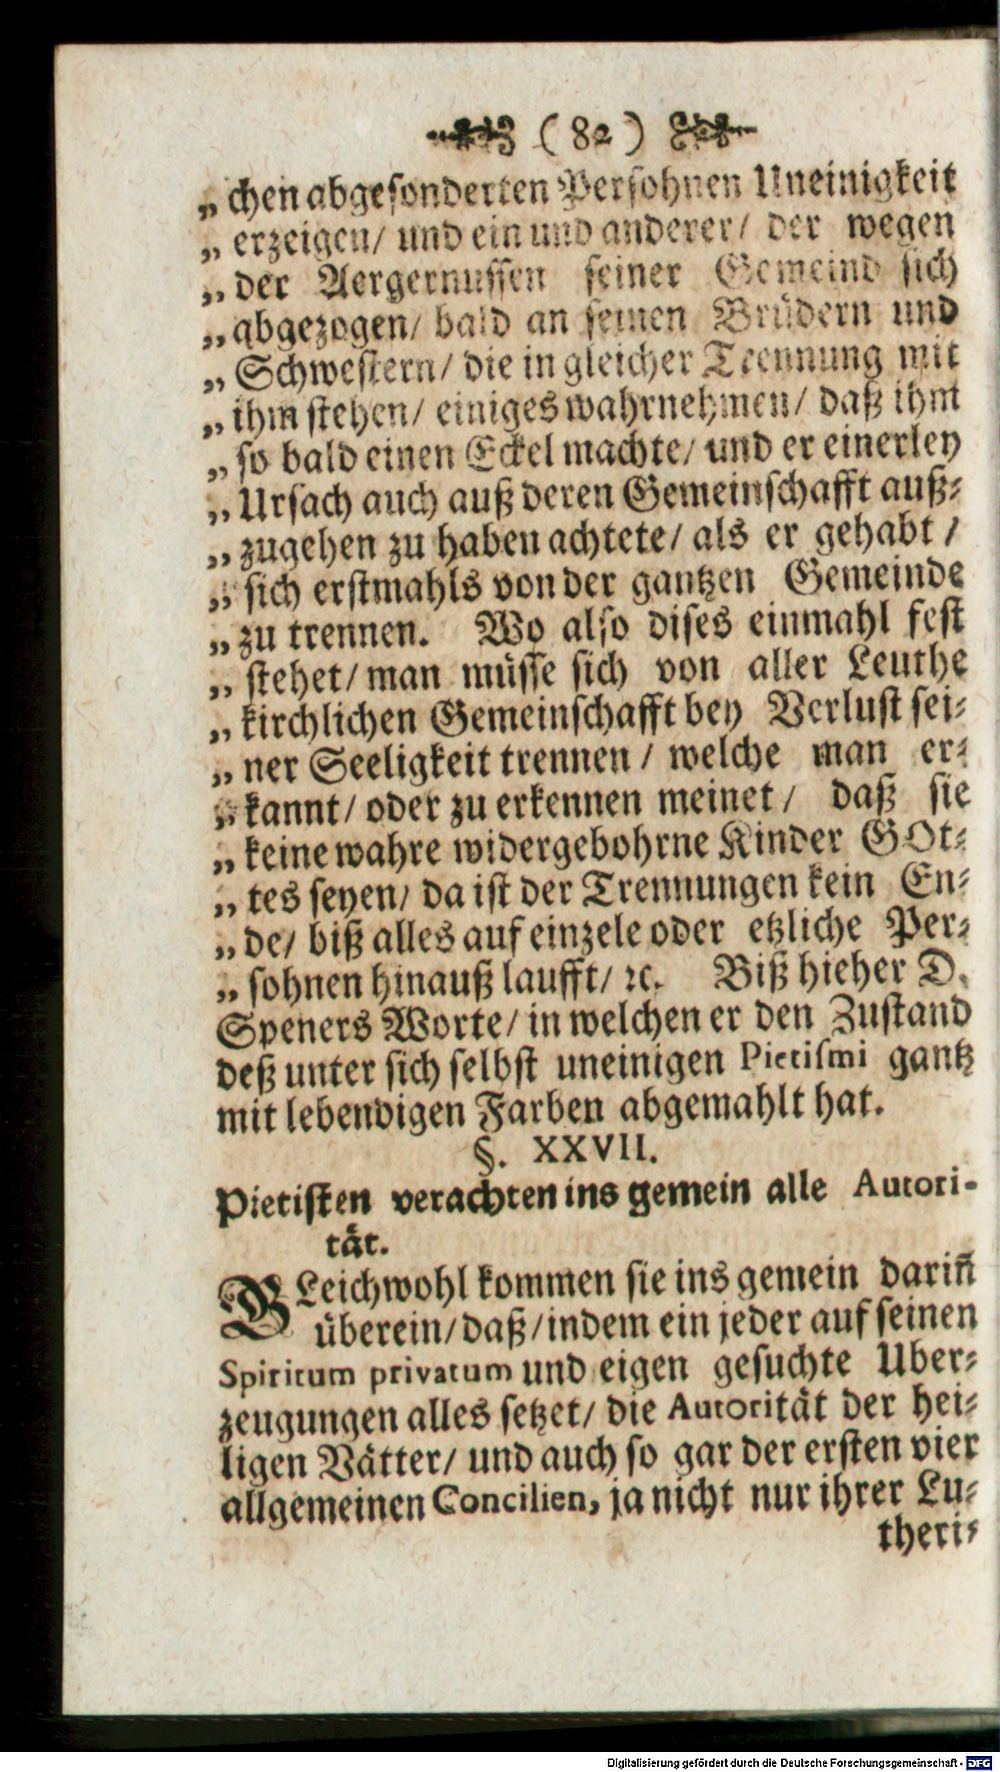 ( 82 )
„ chen abgesonderten Persohnen Uneinigkeit
„ erzeigen/ und ein und anderer/ der wegen
„ der Aergernussen seiner Gemeind sich
„ abgezogen/ bald an seinen Brüdern und
„ Schwestern/ die in gleicher Trennung mit
„ ihm stehen/ einiges wahrnehmen/ daß ihm
„ so bald einen Eckel machte/ und er einerley
„ Ursach auch auß deren Gemeinschafft auß⸗
„ zugehen zu haben achtete/ als er gehabt /
„ sich erstmahls von der gantzen Gemeinde
„ zu trennen. Wo also dises einmahl fest
„ stehet/ man müsse sich von aller Leuthe
„ kirchlichen Gemeinschafft bey Verlust sei⸗
„ ner Seeligkeit trennen / welche man er⸗
„ kannt/ oder zu erkennen meinet / daß sie
„ keine wahre widergebohrne Kinder GOt⸗
„ tes seyen/ da ist der Trennungen kein En⸗
„ de/ biß alles auf einzele oder etzliche Per⸗
„ sohnen hinauß laufft/ ꝛc. Biß hieher D.
Speners Worte/ in welchen er den Zustand
deß unter sich selbst uneinigen Pietismi gantz
mit lebendigen Farben abgemahlt hat.
§. XXVII.
Pietisten verachten ins gemein alle Autori-
tät.
GLeichwohl kommen sie ins gemein dariñ
überein/ daß/ indem ein jeder auf seinen
Spiritum privatum und eigen gesuchte Uber⸗
zeugungen alles setzet/ die Autorität der hei⸗
ligen Vätter/ und auch so gar der ersten vier
allgemeinen Concilien, ja nicht nur ihrer Lu⸗
theri⸗
Digitalisierung gefördert durch die Deutsche Forschungsgemeinschaft - DFG